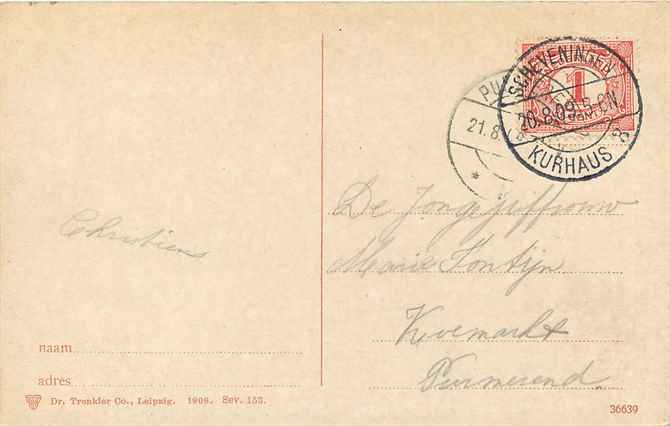 SCHEVENINGEN
1
20.8.09.5-6N
KURHAUS 8
PU
21.8.
De Jongejuffrouw
Marie Fontijn
Koemarkt
Purmerend.
Christien
naam
adres
Dr. Trenkler Co., Leipzig. 1908. Sev. 153.
36639